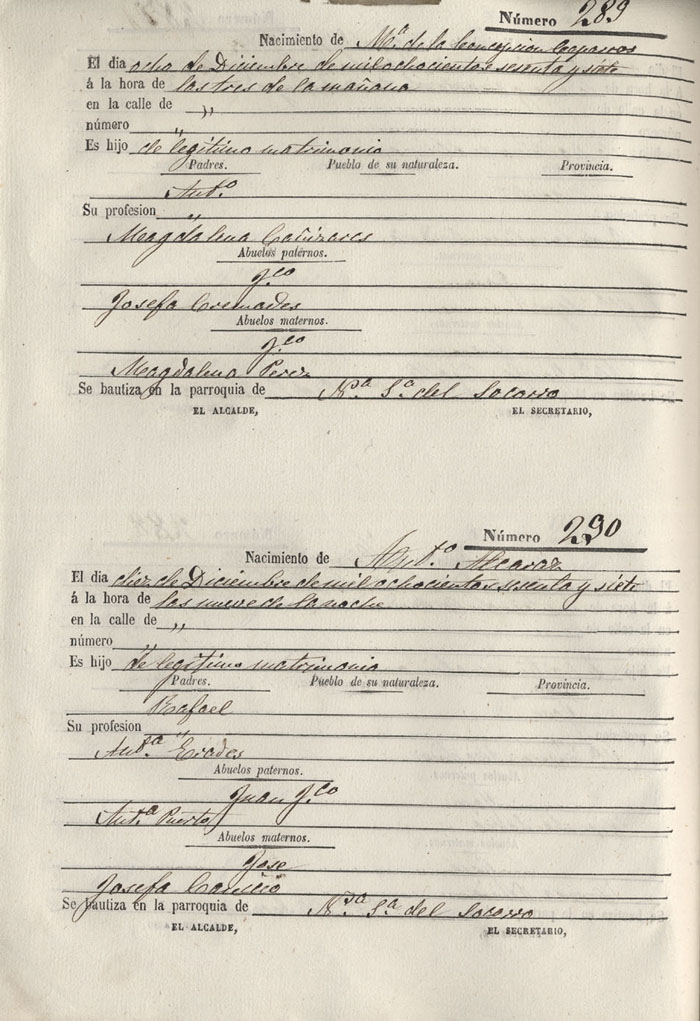 Número 289
Nacimiento de Mª. de la Concepcion Ceparros
El dia ocho de Diciembre de mil ochocientos sesenta y siete
á la hora de las tres de la mañana
en la calle de „
número „
Es hijo de legitimo matrimonio
Padres. Pueblo de su naturaleza. Provincia.
Antº
Su profesion „
Magdalena Cañizares
Abuelos paternos.
Jco
Josefa Cremades
Abuelos maternos.
Jco
Magdalena Perez
Se bautiza en la parroquia de Nª Sª del Socorro
EL ALCALDE, EL SECRETARIO,
Número 290
Nacimiento de Antº Alcaraz
El dia diez de Diciembre de mil ochocientos sesenta y siete
á la hora de las nueve de la noche
en la calle de „
número „
Es hijo de legitimo matrimonio
Padres. Pueblo de su naturaleza. Provincia.
Rafael
Su profesion „
Antª Erades
Abuelos paternos.
Juan Jco
Antª Puerto
Abuelos maternos.
Jose
Josefa
Se bautiza en la parroquia de Nª Sª del Socorro
EL ALCALDE, EL SECRETARIO,